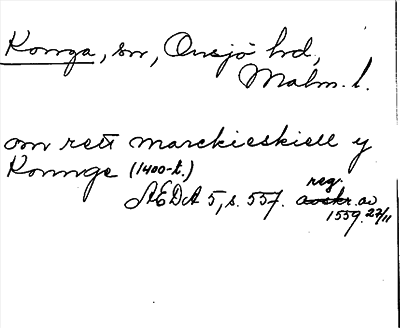 Konga, sn, Onsjö hd,
Malm. l.
om rett marckieskiell y
Konnge (1400-t.)
ÆDA 5, s. 557. reg. av
1559 22/11